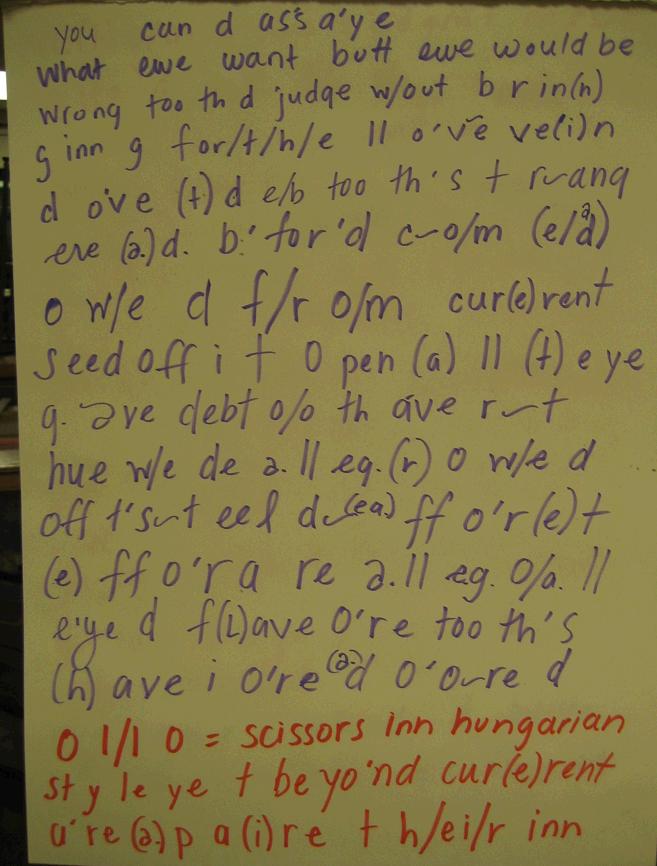 you can d ass a'ye
what ewe want butt ewe would be
wrong too th d judge w/out b r in(n)
g inn g for/t/h/e ll o've ve(i)n
d o've (t)d e/b too th's t
ere (a.)d. b.'for'd c~o/m (e/d)
o w/e d f/r o/m cur(e)rent
seed off i t O pen (a) ll (t) e ye
g. ave debt o/o th ave r~t
hue w/e de a.ll eg.(r) o w/e d
off t's~t eel d~(ea) ff o'r(e)t
(e) ff o'r a re a.ll eg. o/a. ll
e'ye d f(l)ave O're too th's
(h) ave i o're (a.)d o'o~re d
0 1/1 0 = scissors inn hungarian
st y le ye t be yo'nd cur(e)rent
a're (a.) p a(i)re t h/ei/r inn